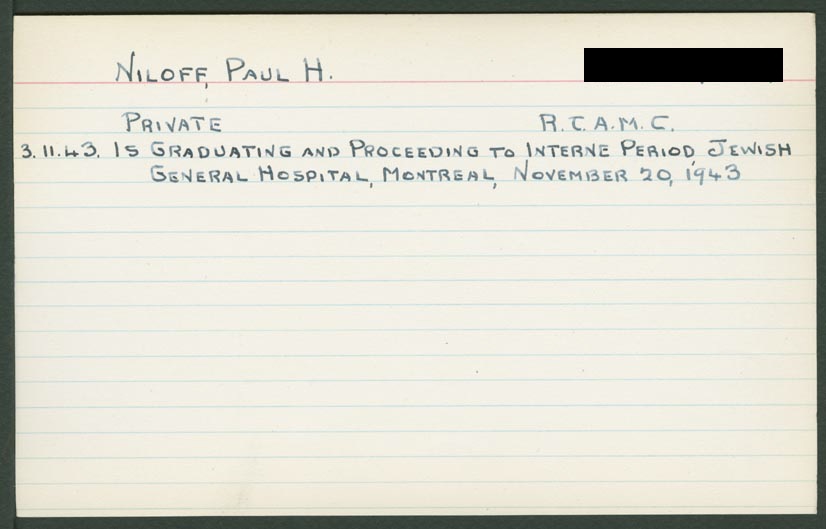 Niloff, Paul H.
Private R.C.A.M.C.
3.11.43. Is Graduating and Proceeding to Interne Period, Jewish
General Hospital, Montreal, November 20, 1943